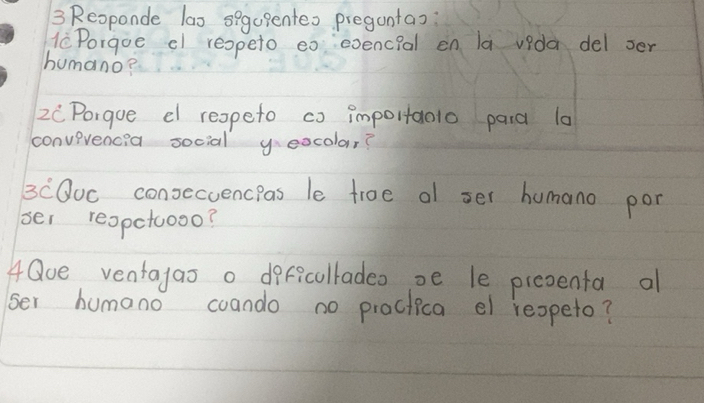 3 Responde las siguientes preguntas:
1¿Porque el respeto es esencial en la vida del ser
humano?
2¿Porque el respeto es importante para la
convivencia social y escolar?
3¿Que consecuencias le trae al ser humano por
ser respetuoso?
4 Que ventajas o dificultades se le presenta al
ser humano cuando no practica el respeto?